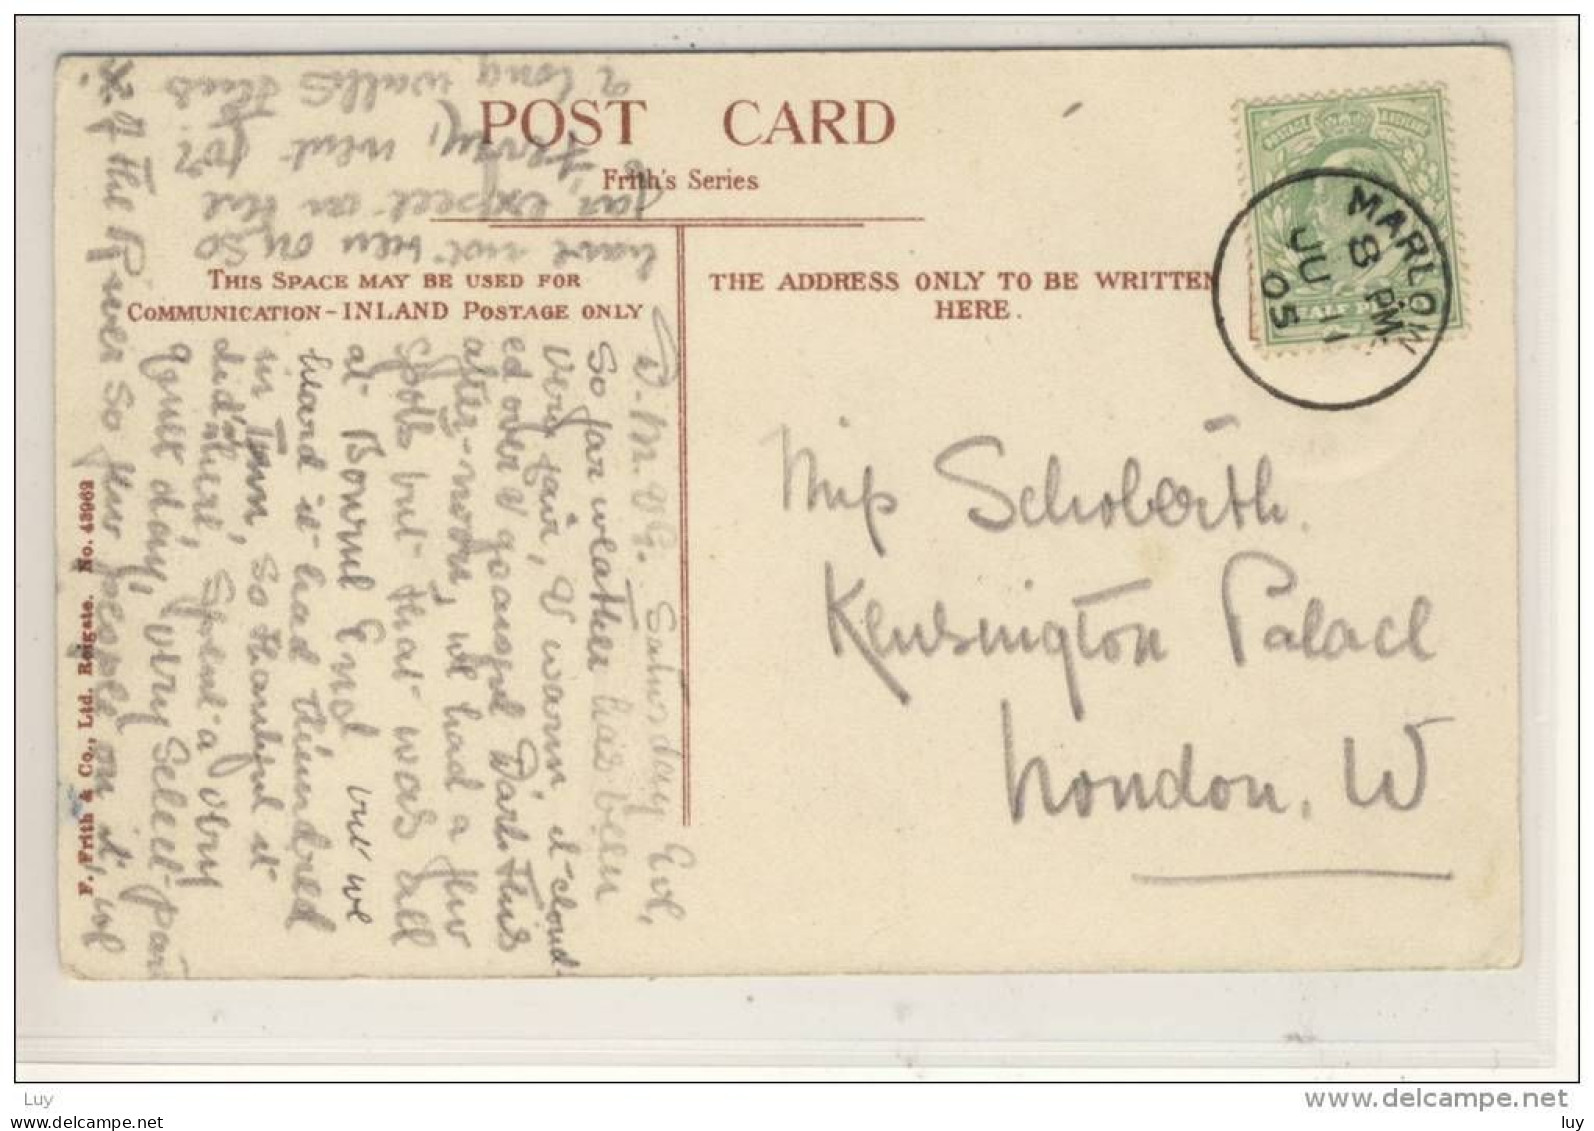 POST CARD
Frith's Series
THIS SPACE MAY BE USED FOR
COMMUNICATION - INLAND POSTAGE ONLY
THE ADDRESS ONLY TO BE WRITTEN
HERE.
MARLOW
8 PM
JU 11
05
Miss
Kensington Palace
London. W
Saturday Eve,
So far weather has been
very fair, & warm, it cloud-
ed over & gained Dark this
after-noon, we had a few
spots but that was all
at Bourne End but we
heard it had thundered
in Town, so thankful it
did'nt here, spent a very
quiet day, very select part
of the River so few people on it, we
have not been on so
far, expect on the
Ferry, went for
a long walks thus
F. Frith & Co., Ltd. Reigate. No. 43962
Luy
delcampe.net
luy
luy